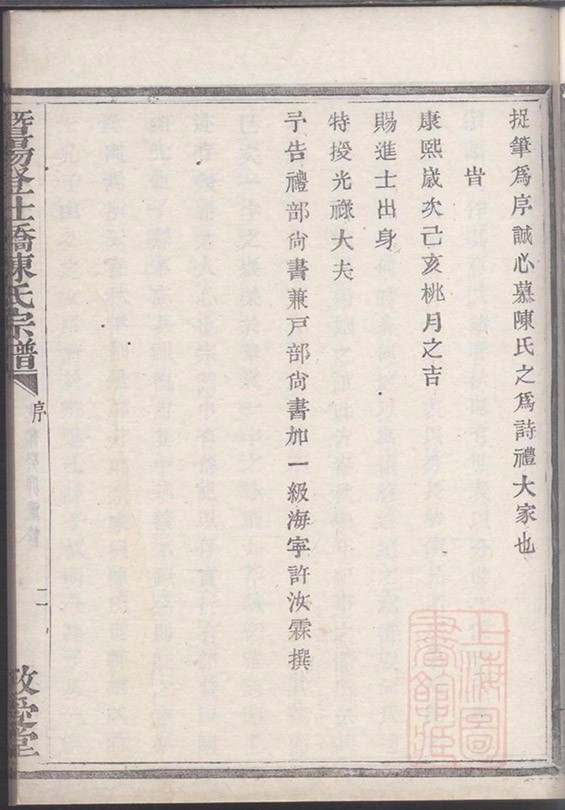 捉筆爲序誠心慕陳氏之爲詩禮大家也
旹
康熙歲次己亥桃月之吉
賜進士出身
特授光祿大夫
予告禮部尙書兼戸部尙書加一級海寧許汝霖撰
暨陽登仕橋陳氏宗譜
序
二
敦愛堂
上海圖書館藏